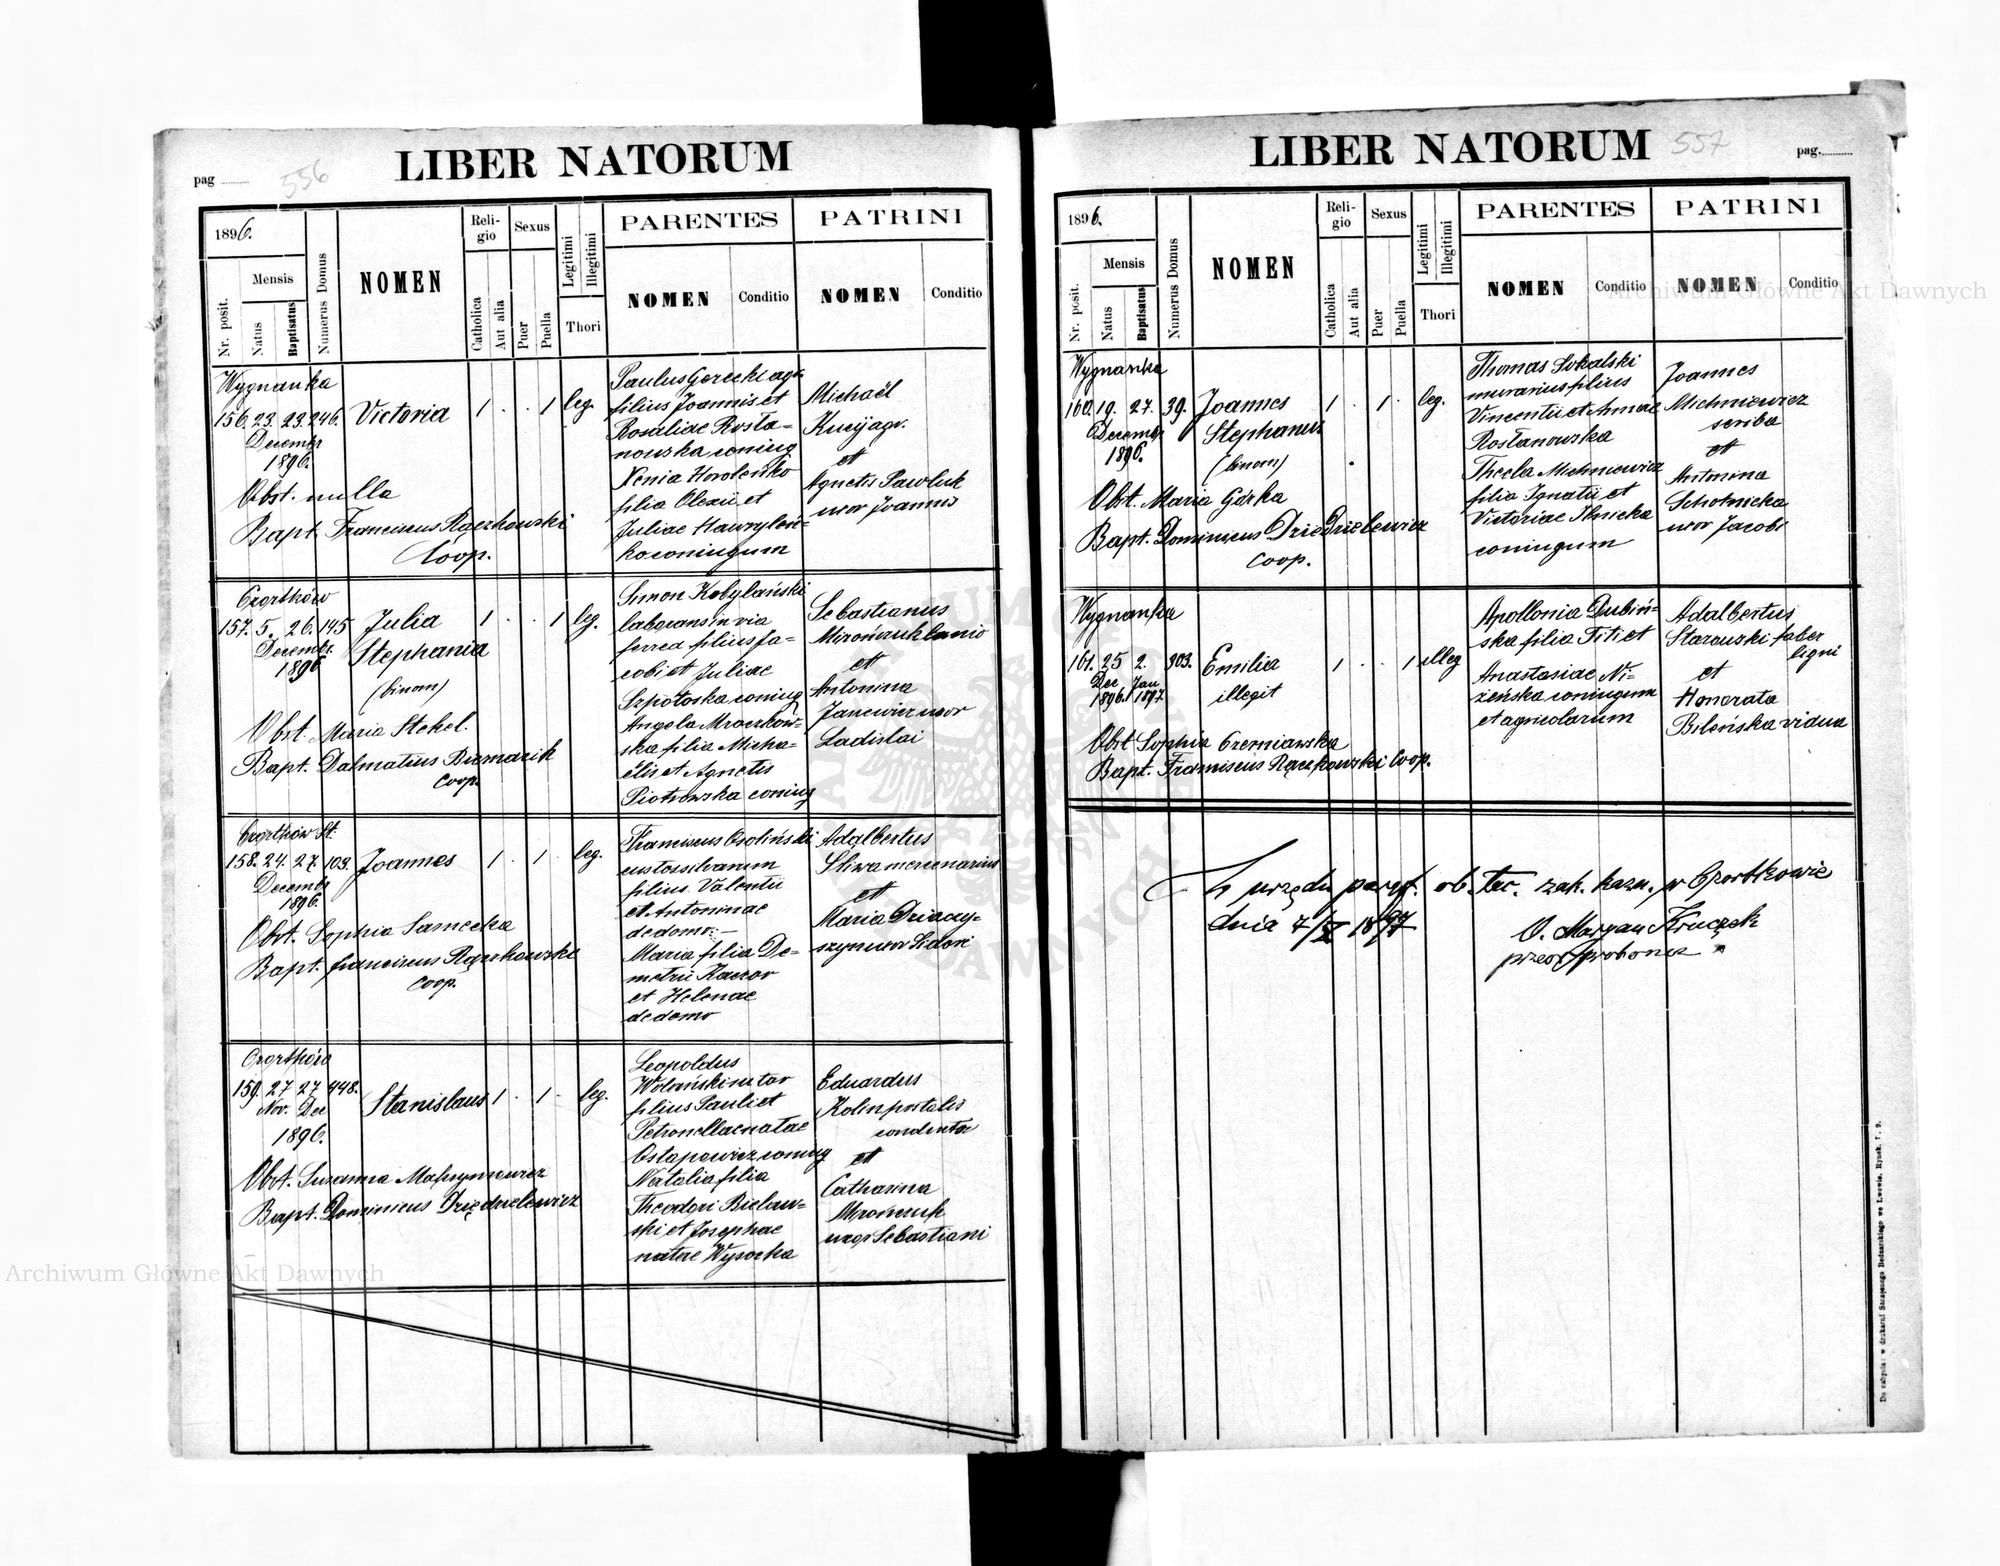 pag
556
LIBER NATORUM
1896.
Nr. posit.
Mensis
Natus
Baptisatus
Numerus Domus
NOMEN
Reli-
gio
Catholica
Aut alia
Sexus
Puer
Puella
Legitimi
Illegitimi
Thori
PARENTES
NOMEN
Conditio
PATRINI
NOMEN
Conditio
Wygnanka
156. 23. 23. 246. Victoria 1 . . 1 leg.
Decembr
1896.
Obst. nulla
Bapt. Franciscus Rączkowski
Coop.
Paulus Gorecki agr.
filius Joannis et
Rosaliae Rosta-
nowska coniug
Xenia Howlenko
filia Olexii et
Juliae Hawryleń-
ko coniugum
Michaël
Kucij agr.
et
Agnetis Pawluk
uxor Joannis
Czortków
157. 5. 26. 145 Julia 1 . . 1 leg.
Decembr. Stephania
1896
(binom)
Obst. Maria Stekel.
Bapt. Dalmatius Biemacik
Coop.
Simon Kobylański
laborans in via
ferrea filius Ja-
cobi et Juliae
Szpotoska coniug
Angela Mroczkow-
ska filia Micha-
ëlis et Agnetis
Piotrowska coniug
Sebastianus
Mirończuk lanio
et
Antonina
Janewicz uxor
Ladislai
Czortków St.
158. 24. 27. 109. Joannes 1 . 1 . leg.
Decembr
1896.
Obst. Sophia Samecka
Bapt. Franciscus Rączkowski
Coop.
Franciscus Osoliński
custos silvarum
filius Valentii
et Antoninae
de domo.—
Maria filia De-
metrii Kaczor
et Helenae
de domo
Adalbertus
Sliwa mercenarius
et
Maria Dziaczy-
szyn uxor Sidori
Czortków
159. 27 27 448. Stanislaus 1 . 1 . leg.
Nov. Dec
1896.
Obst. Susanna Maksymowicz
Bapt. Dominicus Dziędzielewicz
Leopoldus
Wolański sutor
filius Pauli et
Petronellae natae
Ostapowicz coniug
Natalia filia
Theodori Bielaw-
ski et Josephae
natae Wysocka
Eduardus
Kolin postalis
conductor
et
Catharina
Mirończuk
uxor Sebastiani
LIBER NATORUM
557
pag.
1896.
Nr. posit.
Mensis
Natus
Baptisatus
Numerus Domus
NOMEN
Reli-
gio
Catholica
Aut alia
Sexus
Puer
Puella
Legitimi
Illegitimi
Thori
PARENTES
NOMEN
Conditio
PATRINI
NOMEN
Conditio
Wygnanka
160. 19. 27. 39. Joannes 1 . 1 . leg.
Decembr Stephanus
1896. (binom)
Obst. Maria Górka
Bapt. Dominicus Dziędzielewicz
Coop.
Thomas Sokalski
murarius filius
Vincentii et Annae
Rostanowska
Thecla Michniewicz
filia Ignatii et
Victoriae Ilnicka
coniugum
Joannes
Michniewicz
scriba
et
Antonina
Schotnicka
uxor Jacobi
Wygnanka
161. 25 2. 303. Emilia 1 . . 1 illeg
Dec Jan illegit
1896. 1897
Obst Sophia Czerniawska
Bapt. Franciscus Rączkowski Coop.
Apollonia Dubiń-
ska filia Titi et
Anastasiae Ni-
żeńska coniugum
et agricolarum
Adalbertus
Starowski faber
ligni
et
Honorata
Bileńska vidua
Z urzędu paraf. ob. łac. zak. kazn. w Czortkowie
dnia 7/X 1897
O. Maryan Kruczek
przeor proboszcz
Do nabycia: w drukarni Szczęsnego Bednarskiego we Lwowie, Rynek, l. 9.
Archiwum Główne Akt Dawnych
Archiwum Główne Akt Dawnych